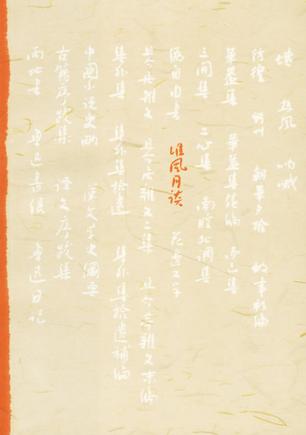 墳 热風 呐喊
彷徨 野草 朝華夕拾 故事新编
華蓋集 華蓋集续编 而已集
三闲集 二心集 南腔北调集
伪自由书 准风月谈 花边文学
且介亭雜文 且介亭雜文二集 且介亭雜文末编
集外集 集外集拾遗 集外集拾遗補编
中國小说史略 漢文学史纲要
古籍序跋集 译文序跋集
两地书 鲁迅书信 鲁迅日记